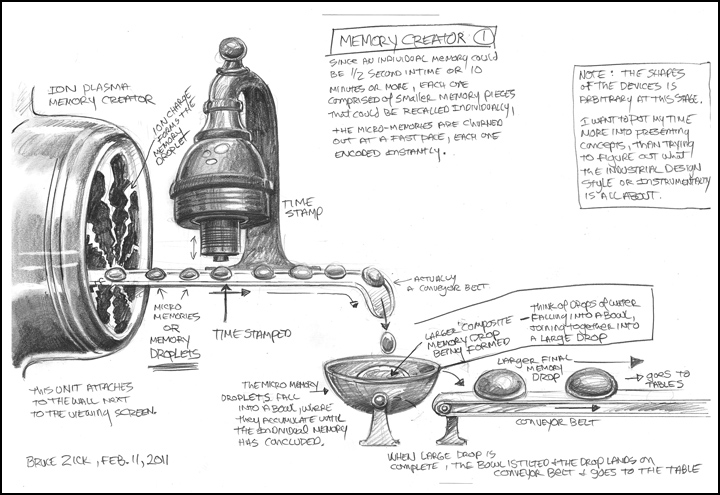 MEMORY CREATOR 1
SINCE AN INDIVIDUAL MEMORY COULD
BE 1/2 SECOND IN TIME OR 10
MINUTES OR MORE, EACH ONE
COMPRISED OF SMALLER MEMORY PIECES
THAT COULD BE RECALLED INDIVIDUALLY,
THE MICRO-MEMORIES ARE CHURNED
OUT AT A FAST PACE, EACH ONE
ENCODED INSTANTLY.
NOTE: THE SHAPES
OF THE DEVICES IS
ARBITRARY AT THIS STAGE.
I WANT TO PUT MY TIME
MORE INTO PRESENTING
CONCEPTS, THAN TRYING
TO FIGURE OUT WHAT
THE INDUSTRIAL DESIGN
STYLE OR INSTRUMENTALITY
IS ALL ABOUT.
ION PLASMA
MEMORY CREATOR
ION CHARGE
FORMS THE
MEMORY
DROPLET
TIME
STAMP
ACTUALLY
A CONVEYOR BELT
MICRO
MEMORIES
OR
MEMORY
DROPLETS
TIME STAMPED
LARGER "COMPOSITE"
MEMORY DROP
BEING FORMED
THINK OF DROPS OF WATER
FALLING INTO A BOWL,
JOINING TOGETHER INTO
A LARGE DROP
LARGER FINAL
MEMORY
DROP
GOES TO
TABLES
THIS UNIT ATTACHES
TO THE WALL NEXT
TO THE VIEWING SCREEN.
THE MICRO MEMORY
DROPLETS FALL
INTO A BOWL, WHERE
THEY ACCUMULATE UNTIL
THE INDIVIDUAL MEMORY
HAS CONCLUDED.
CONVEYOR BELT
WHEN LARGE DROP IS
COMPLETE, THE BOWL IS TILTED & THE DROP LANDS ON
CONVEYOR BELT & GOES TO THE TABLE
BRUCE ZICK, FEB. 11, 2011